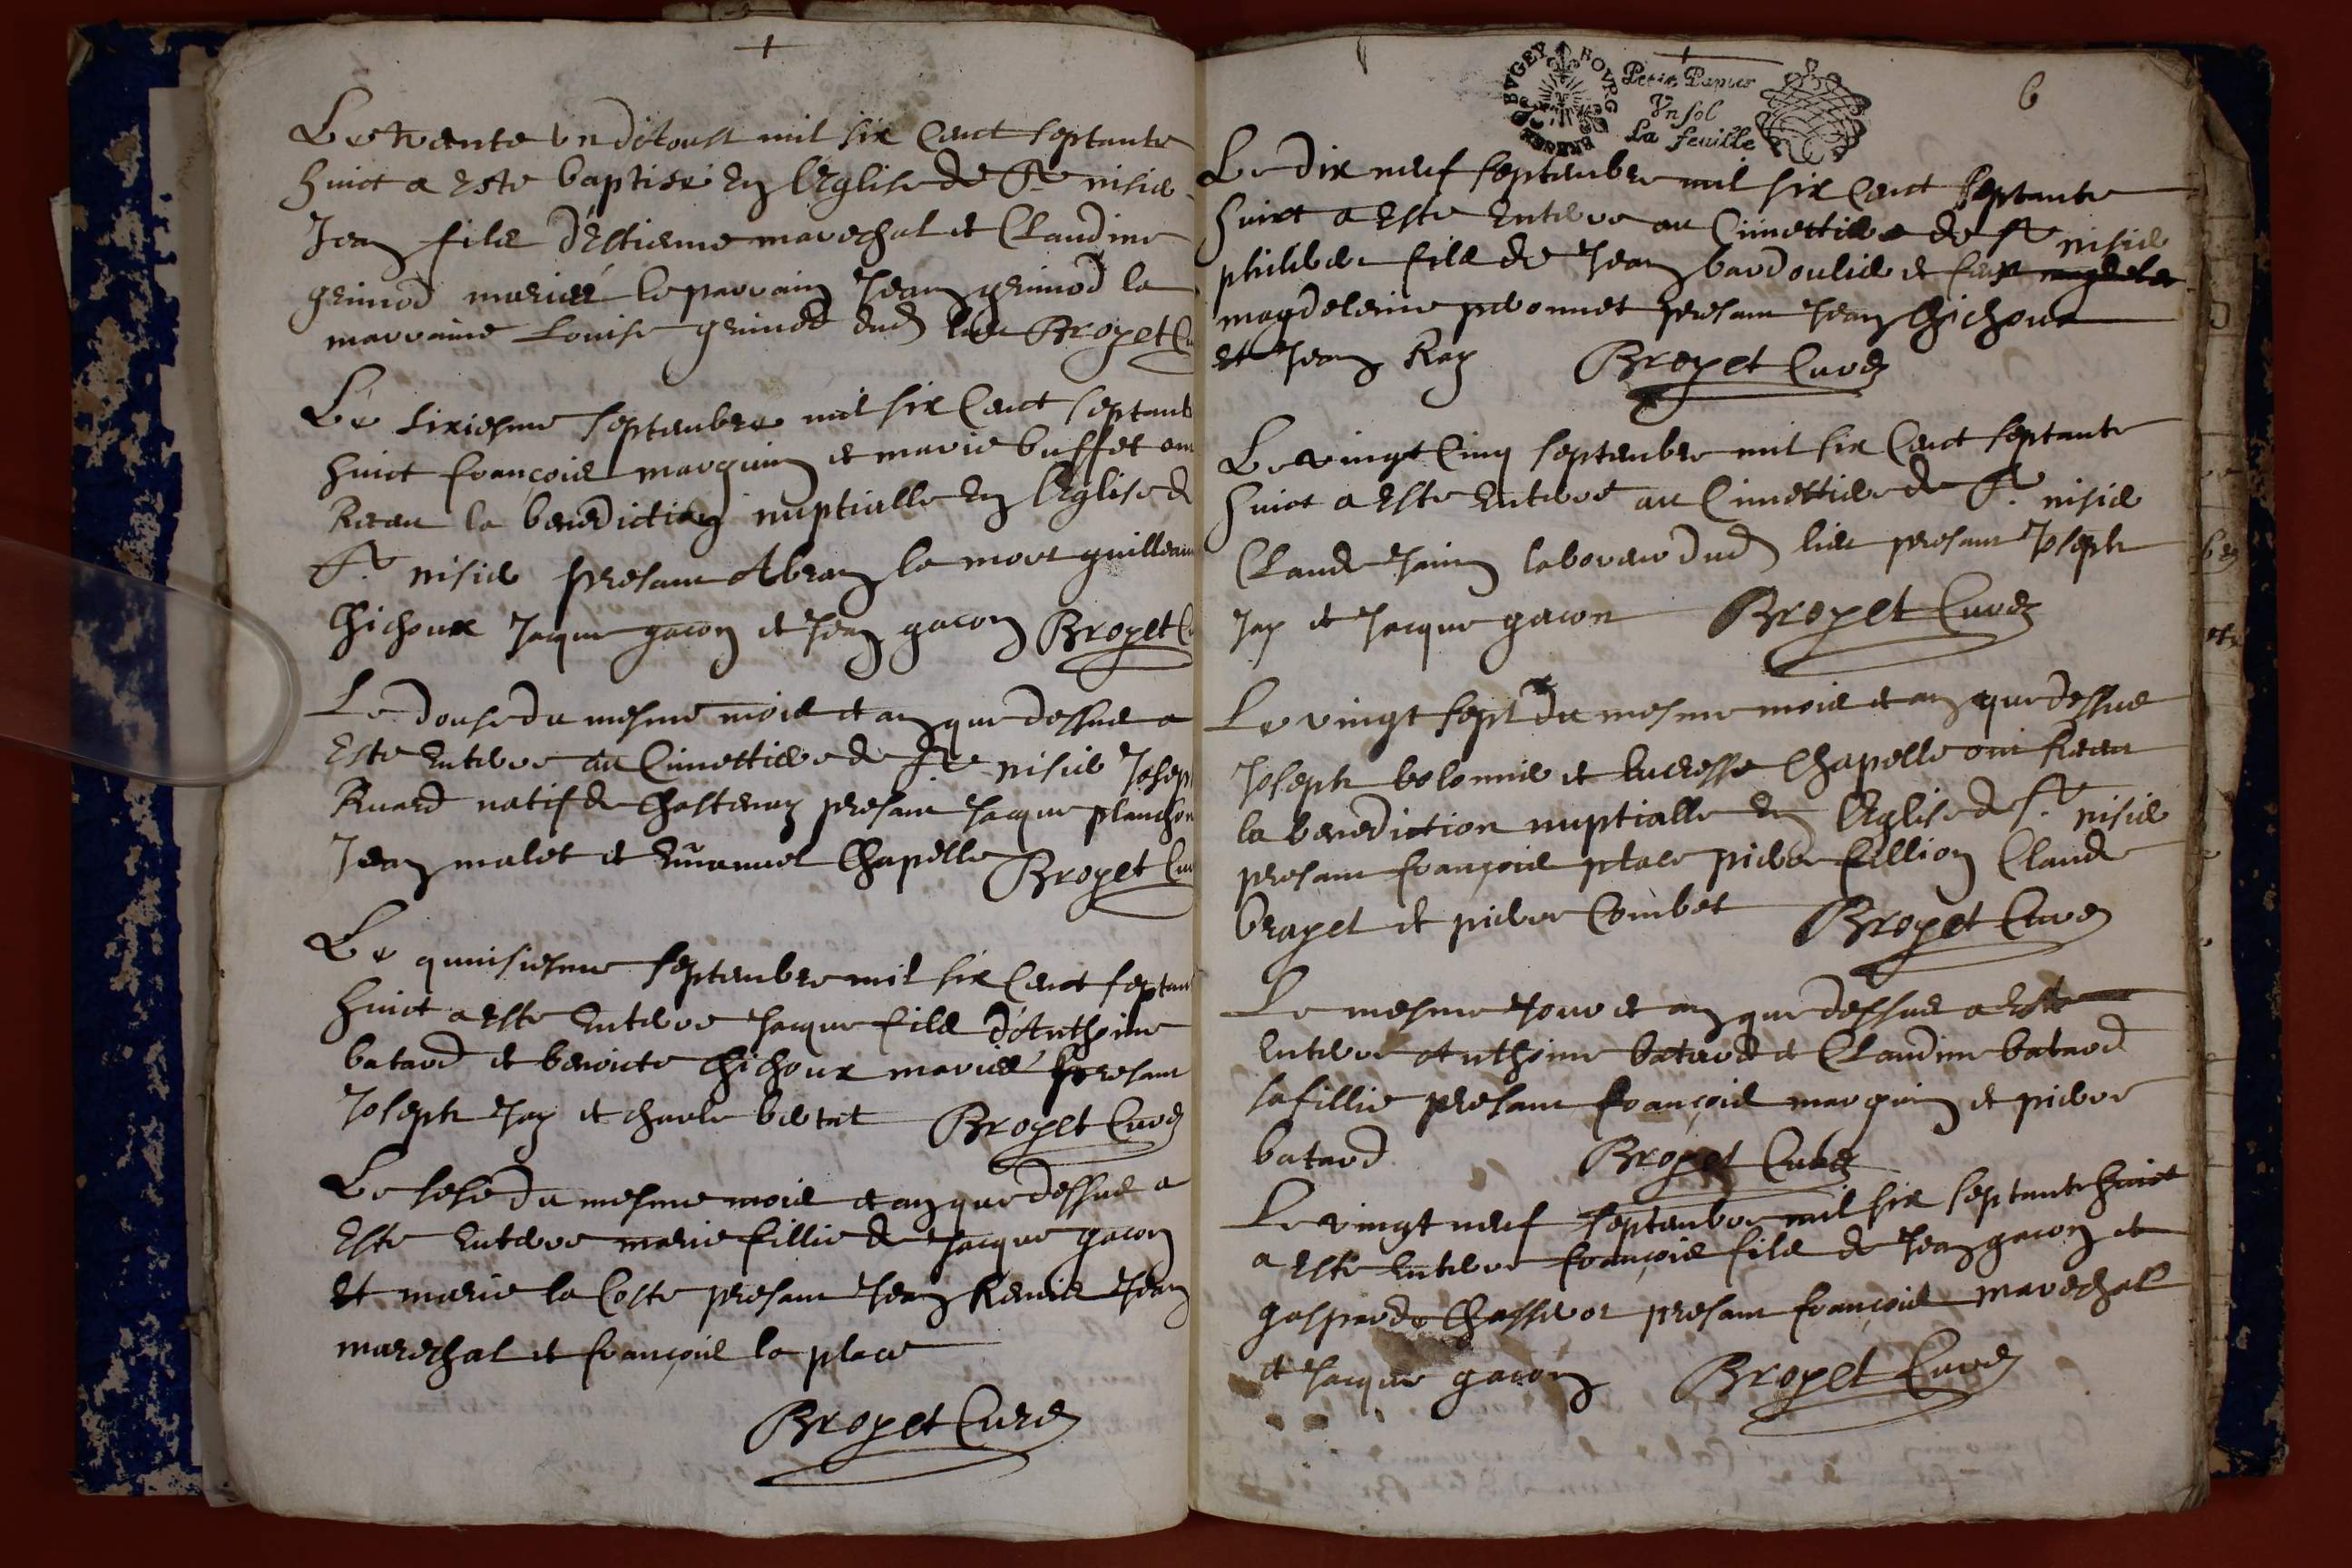 Le trente un d'Aoust mil six Cent septante
huict a este baptisé en l'Eglise de St nisie
Jean fils d'Estienne marechal et Claudine
grimod mariés le parrain Jean grimod la
marraine Louise grimod dud lieu Broyet Cu
Le sixiesme septembre mil six Cent septant
huict françois marguin et marie buffet ont
Receu la benediction nuptialle en l'Eglise de
St nisie presant Abram la mort guilleaume
Chichoux Jacque gacon et Jean gacon Broyet Cu
Le douse du mesme mois et an que dessus a
Este Enterre au Cimettiere de St nisie Joseph
Ruard natif de Chastenay presant Jacque planchon
Jean malet et Emanuel Chapelle Broyet Cur
Le quinsiesme septembre mil six Cent septan
huict a este Enterre Jacque fils d'Anthoine
batard et benoicte Chichoux mariés presant
Joseph Jay et charle bertet Broyet Curé
Le sese du mesme mois et an que dessus a
Este Enterre marie fillie de Jacque gacon
et marie la Coste presant Jean Renier Jean
marechal et françois la place
Broyet Curé
BVGEY BOVRG
Petit Papier
Vn sol
La feuille
6
Le dix neuf septembre mil six Cent septante
huict a Este Enterre au Cimettiere de St nisie
philiber fils de Jean bardoulie et feu
magdeleine peronnet presant Jean Chichoux
et Jean Ray Broyet Curé
Le vingt Cinq septembre mil six Cent septante
huict a Este Enterré au Cimettiere de St nisie
Claude Janin laboreur dud lieu presant Joseph
Jay et Jacque gacon Broyet Curé
Le vingt sept du mesme mois et an que dessus
Joseph bolomie et Lucresse Chapelle ont Receu
la benediction nuptialle en l'Eglise de St nisie
presant françois place pierre fillion Claude
brayet et pierre Combet Broyet Curé
Le mesme Jour et an que dessus a Este
Enterre Anthoine batard et Claudine batard
sa fillie presant françois marguin et pierre
batard Broyet Curé
Le vingt neuf septembre mil six septante huict
a Este Enterre françois fils de Jean gacon et
gasparde Chasseror presant françois marechal
et Jacque gacon Broyet Curé